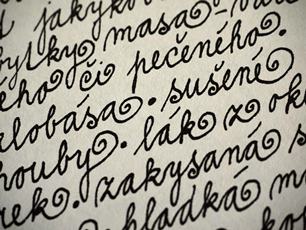 jakýko
bylky masa
ého či pečeného.
klobása. sušené
houby. lák z ok
rek. zakysaná s
hladká